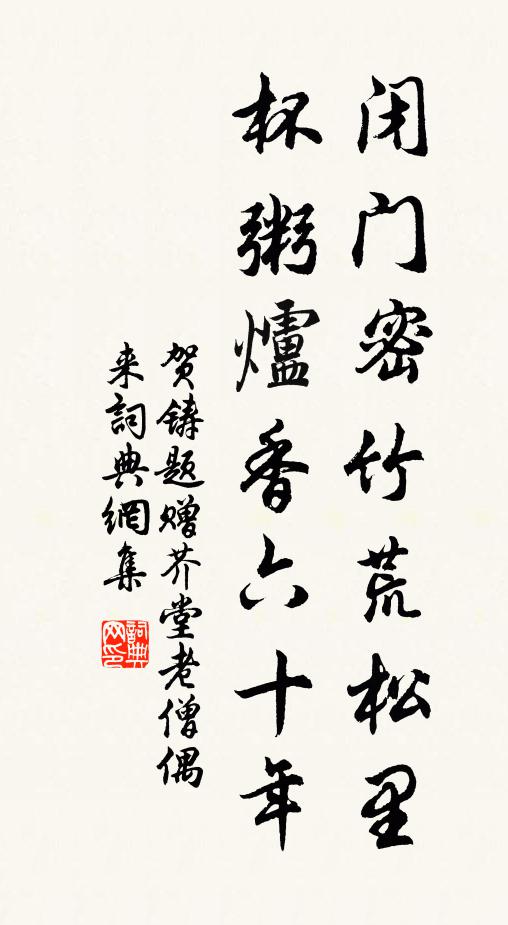 闭门密竹荒松里
杯粥爐香六十年
贺铸题赠芥堂老僧偶
来詞典網集
詞典
网印